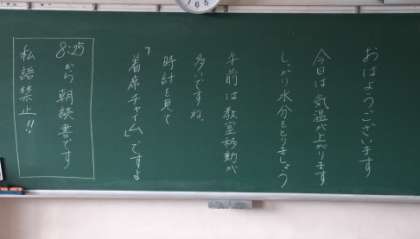 おはようございます
今日は気温が上がります
しっかり水分をとりましょう
午前は教室移動が
多いですね。
時計を見て
「着席チャイム」ですよ
8:25
から朝読書です
私語禁止!!